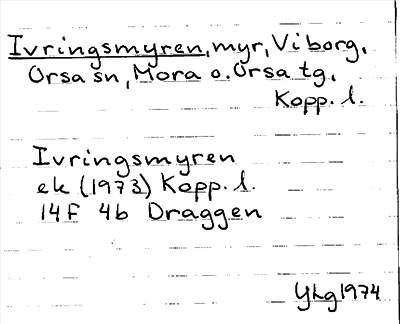 Ivringsmyren, myr, Viborg,
Orsa sn, Mora o. Orsa tg,
Kopp. l.
Ivringsmyren
ek (1973) Kopp. l.
14F 4b Draggen
YLg 1974